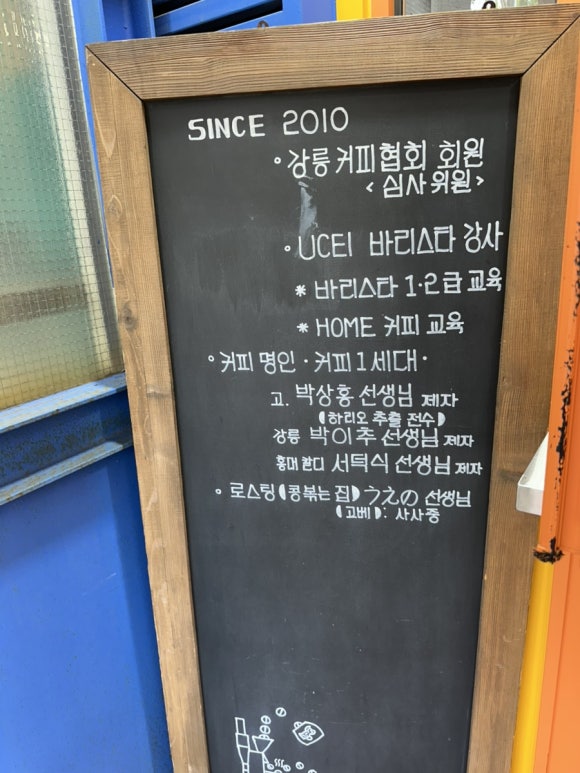 SINCE 2010
◦ 강릉커피협회 회원
< 심사위원 >
◦ UCEI 바리스타 강사
* 바리스타 1·2급 교육
* HOME 커피 교육
◦ 커피 명인 · 커피 1세대 ·
고. 박상홍 선생님 제자
(하리오 추출 전수)
강릉 박이추 선생님 제자
홍대 칼디 서덕식 선생님 제자
◦ 로스팅 (콩볶는 집) うえの 선생님
(고베) : 사사중